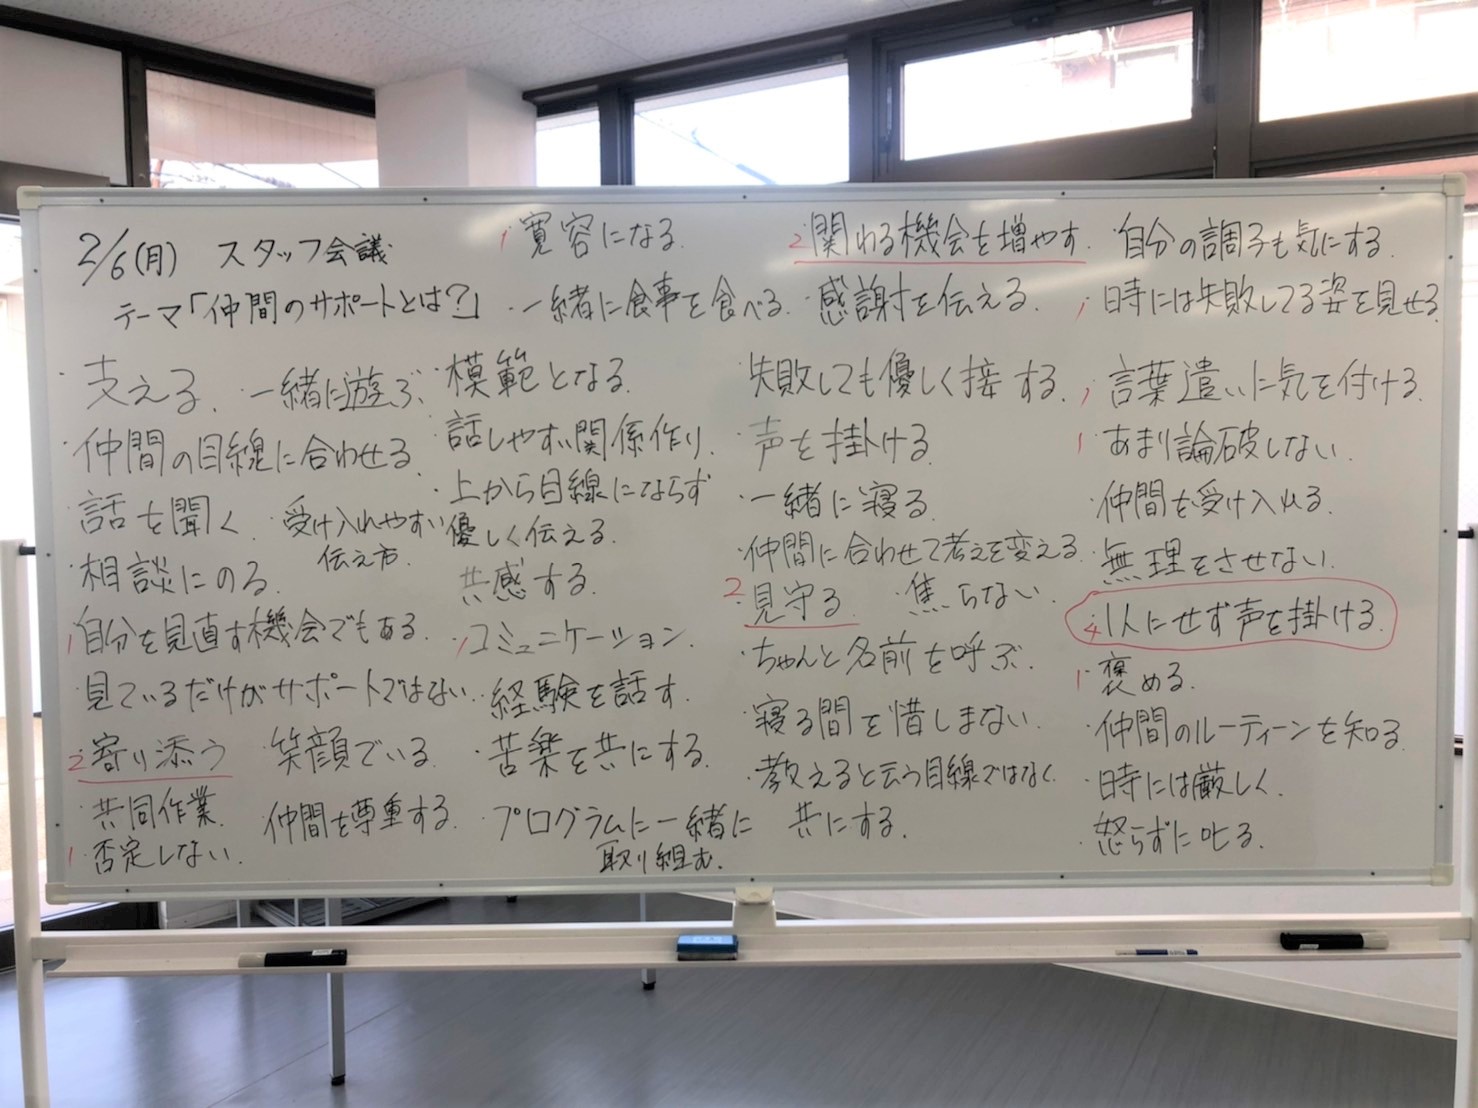 2/6(月) スタッフ会議
テーマ「仲間のサポートとは?」
・支える. ・一緒に遊ぶ
・仲間の目線に合わせる.
・話を聞く ・受け入れやすい
伝え方.
・相談にのる.
1 自分を見直す機会でもある.
・見ているだけがサポートではない.
2 寄り添う ・笑顔でいる.
・共同作業. ・仲間を尊重する.
1 否定しない.
1 寛容になる.
・一緒に食事を食べる.
・模範となる.
・話しやすい関係作り.
・上から目線にならず
優しく伝える.
・共感する.
1 コミュニケーション.
・経験を話す.
・苦楽を共にする.
・プログラムに一緒に
取り組む.
2 関わる機会を増やす.
・感謝を伝える.
・失敗しても優しく接する.
・声を掛ける
・一緒に寝る.
・仲間に合わせて考えを変える.
2 見守る ・焦らない.
・ちゃんと名前を呼ぶ.
・寝る間を惜しまない.
・教えると云う目線ではなく
共にする.
・自分の調子も気にする.
1 時には失敗してる姿を見せる.
1 言葉遣いに気を付ける.
1 あまり論破しない.
・仲間を受け入れる.
・無理をさせない.
4 1人にせず声を掛ける.
1 褒める.
・仲間のルーティーンを知る.
・時には厳しく.
・怒らずに叱る.